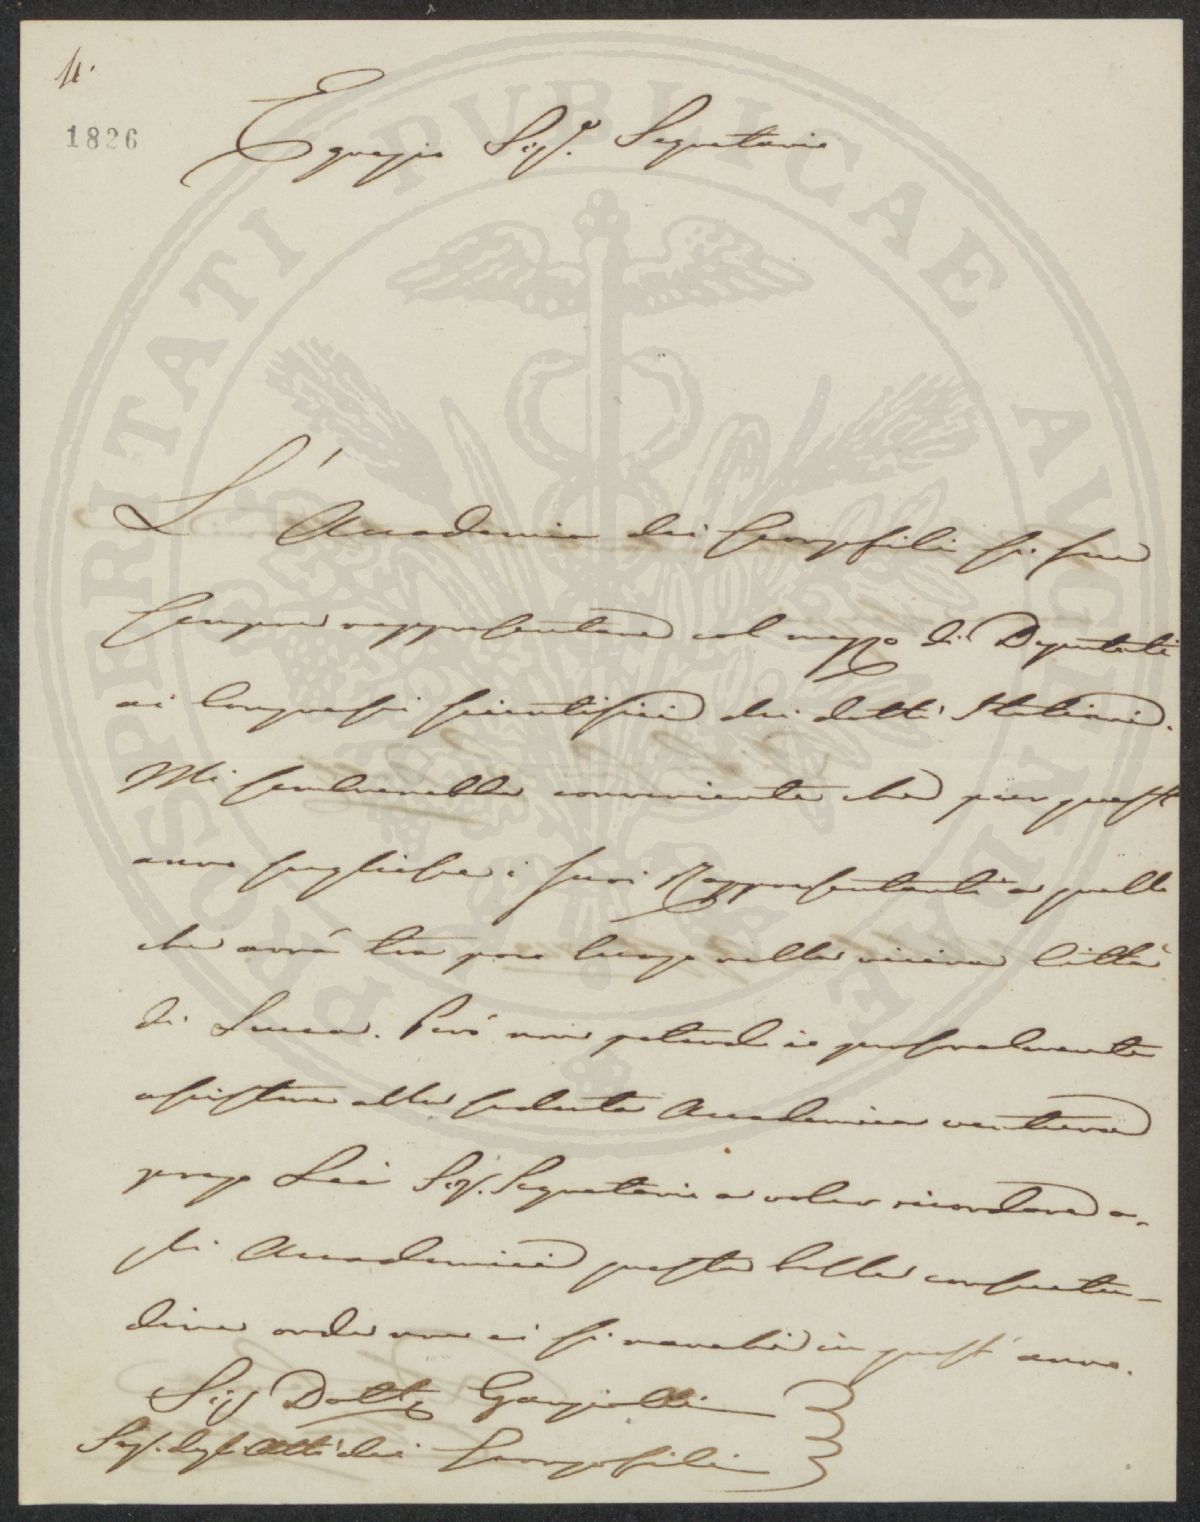 4.
1826
Egregio Sig.re Segretario
L'Accademia dei Georgofili si fece
sempre rappresentare col mezzo di Deputati
ai Congressi scientifici dei dotti Italiani.
Mi sembrerebbe conveniente che per quest'
anno scegliesse i suoi Rappresentanti a quello
che avrà tra poco luogo nella vicina Città
di Lucca. Però non potendo io personalmente
assistere alla seduta Accademica ventura
prego Lei Sig. Segretario a voler ricordare a-
gli Accademici questa bella consuetu-
dine onde non ci si manchi in quest'anno.
Sig Dott Gargiolli
Seg. degli Atti dei Georgofili
PROSPERITATI PUBLICAE AUGENDAE